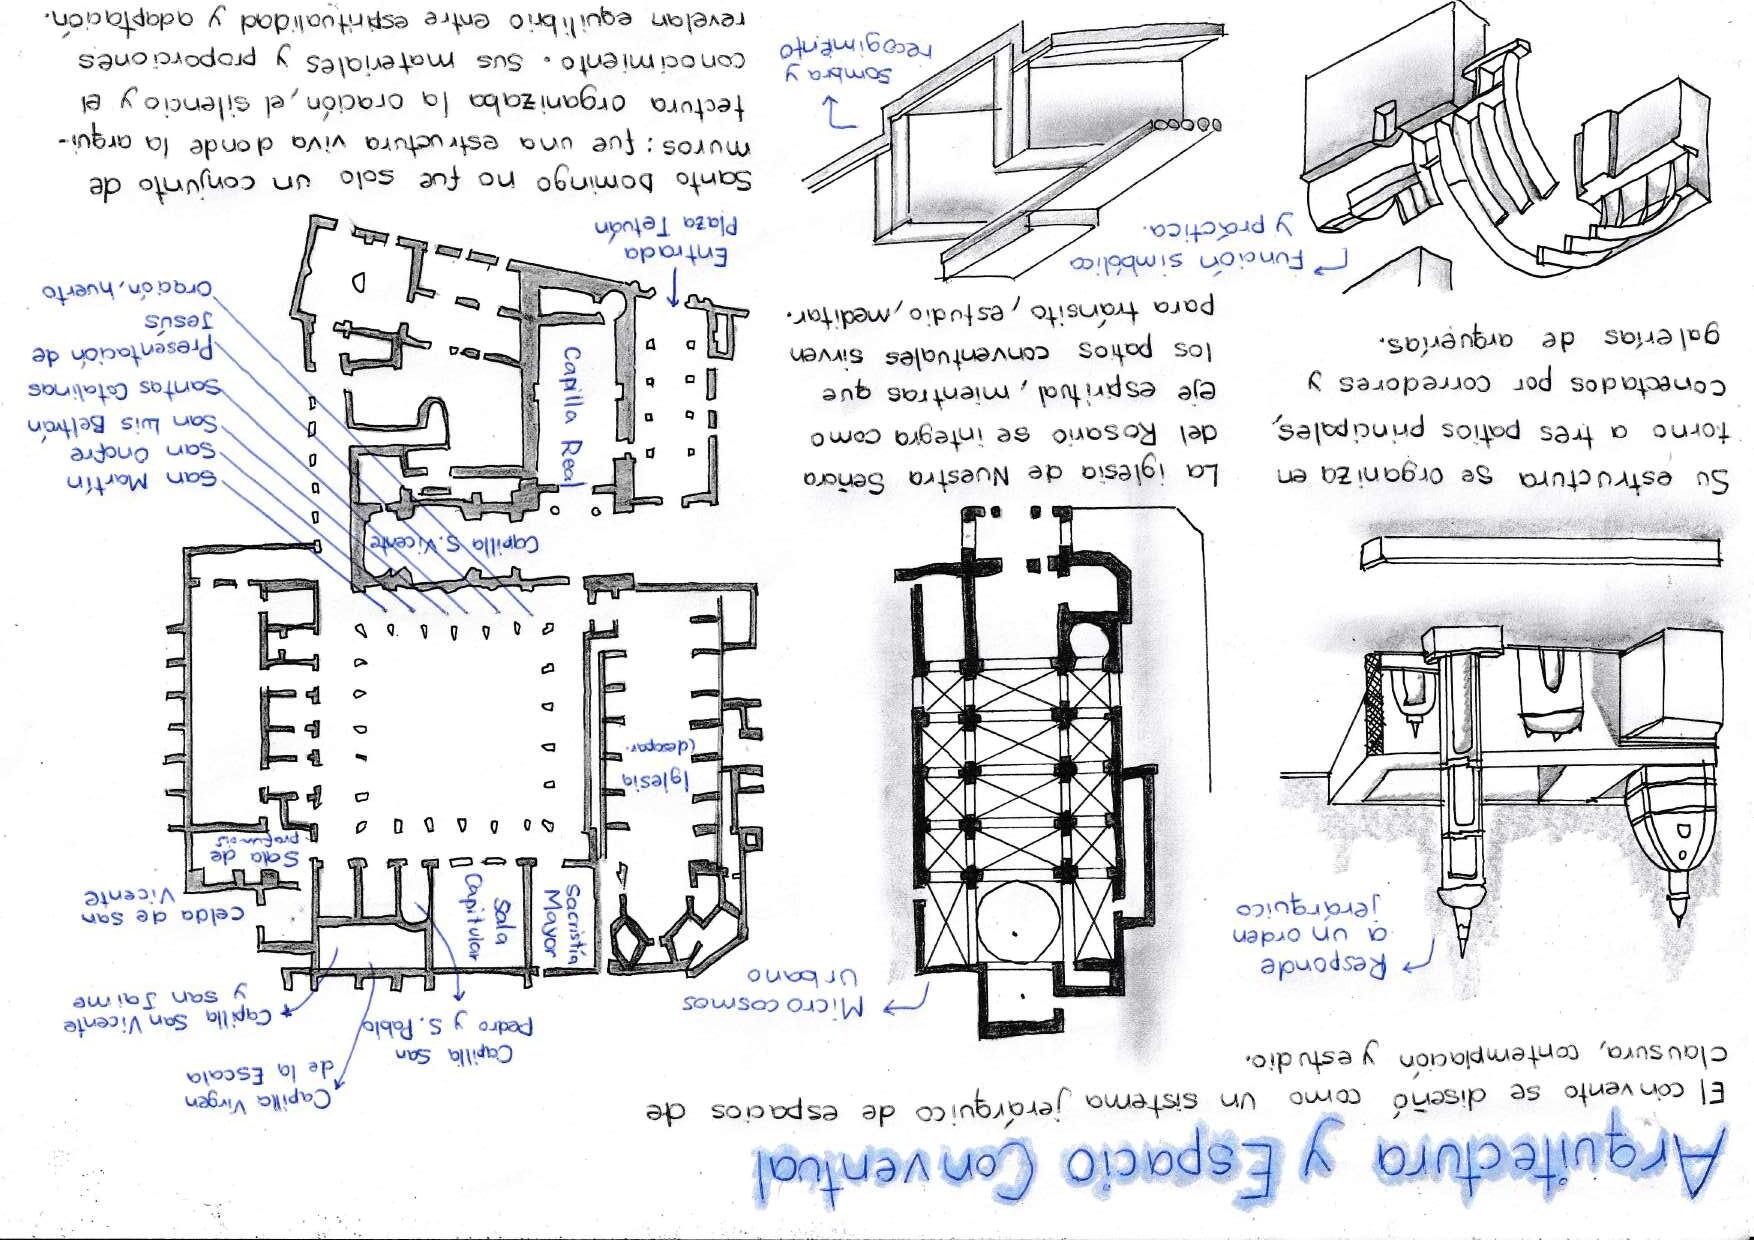 Arquitectura y Espacio Conventual
El convento se diseñó como un sistema jerárquico de espacios de
clausura, contemplación y estudio.
Responde
a un orden
jerárquico
Su estructura se organiza en
torno a tres patios principales,
conectados por corredores y
galerías de arquerías.
Función simbólica
y práctica.
Microcosmos
Urbano
La iglesia de Nuestra Señora
del Rosario se integra como
eje espiritual, mientras que
los patios conventuales sirven
para tránsito, estudio, meditar.
Sombra y
recogimiento
Capilla Virgen
de la Escala
Capilla San
Pedro y S. Pablo
Capilla San Vicente
y san Jaime
Celda de san
Vicente
Sala de
profundis
Sacristía
Mayor
Sala
Capitular
Iglesia
(desapar.
Capilla S. Vicente
Capilla Real
San Martín
San Onofre
San Luis Beltrán
Santas Catalinas
Presentación de
Jesús
Oración, huerto
Entrada
Plaza Tetuán
Santo Domingo no fue solo un conjunto de
muros: fue una estructura viva donde la arqui-
tectura organizaba la oración, el silencio y el
conocimiento. Sus materiales y proporciones
revelan equilibrio entre espiritualidad y adaptación.